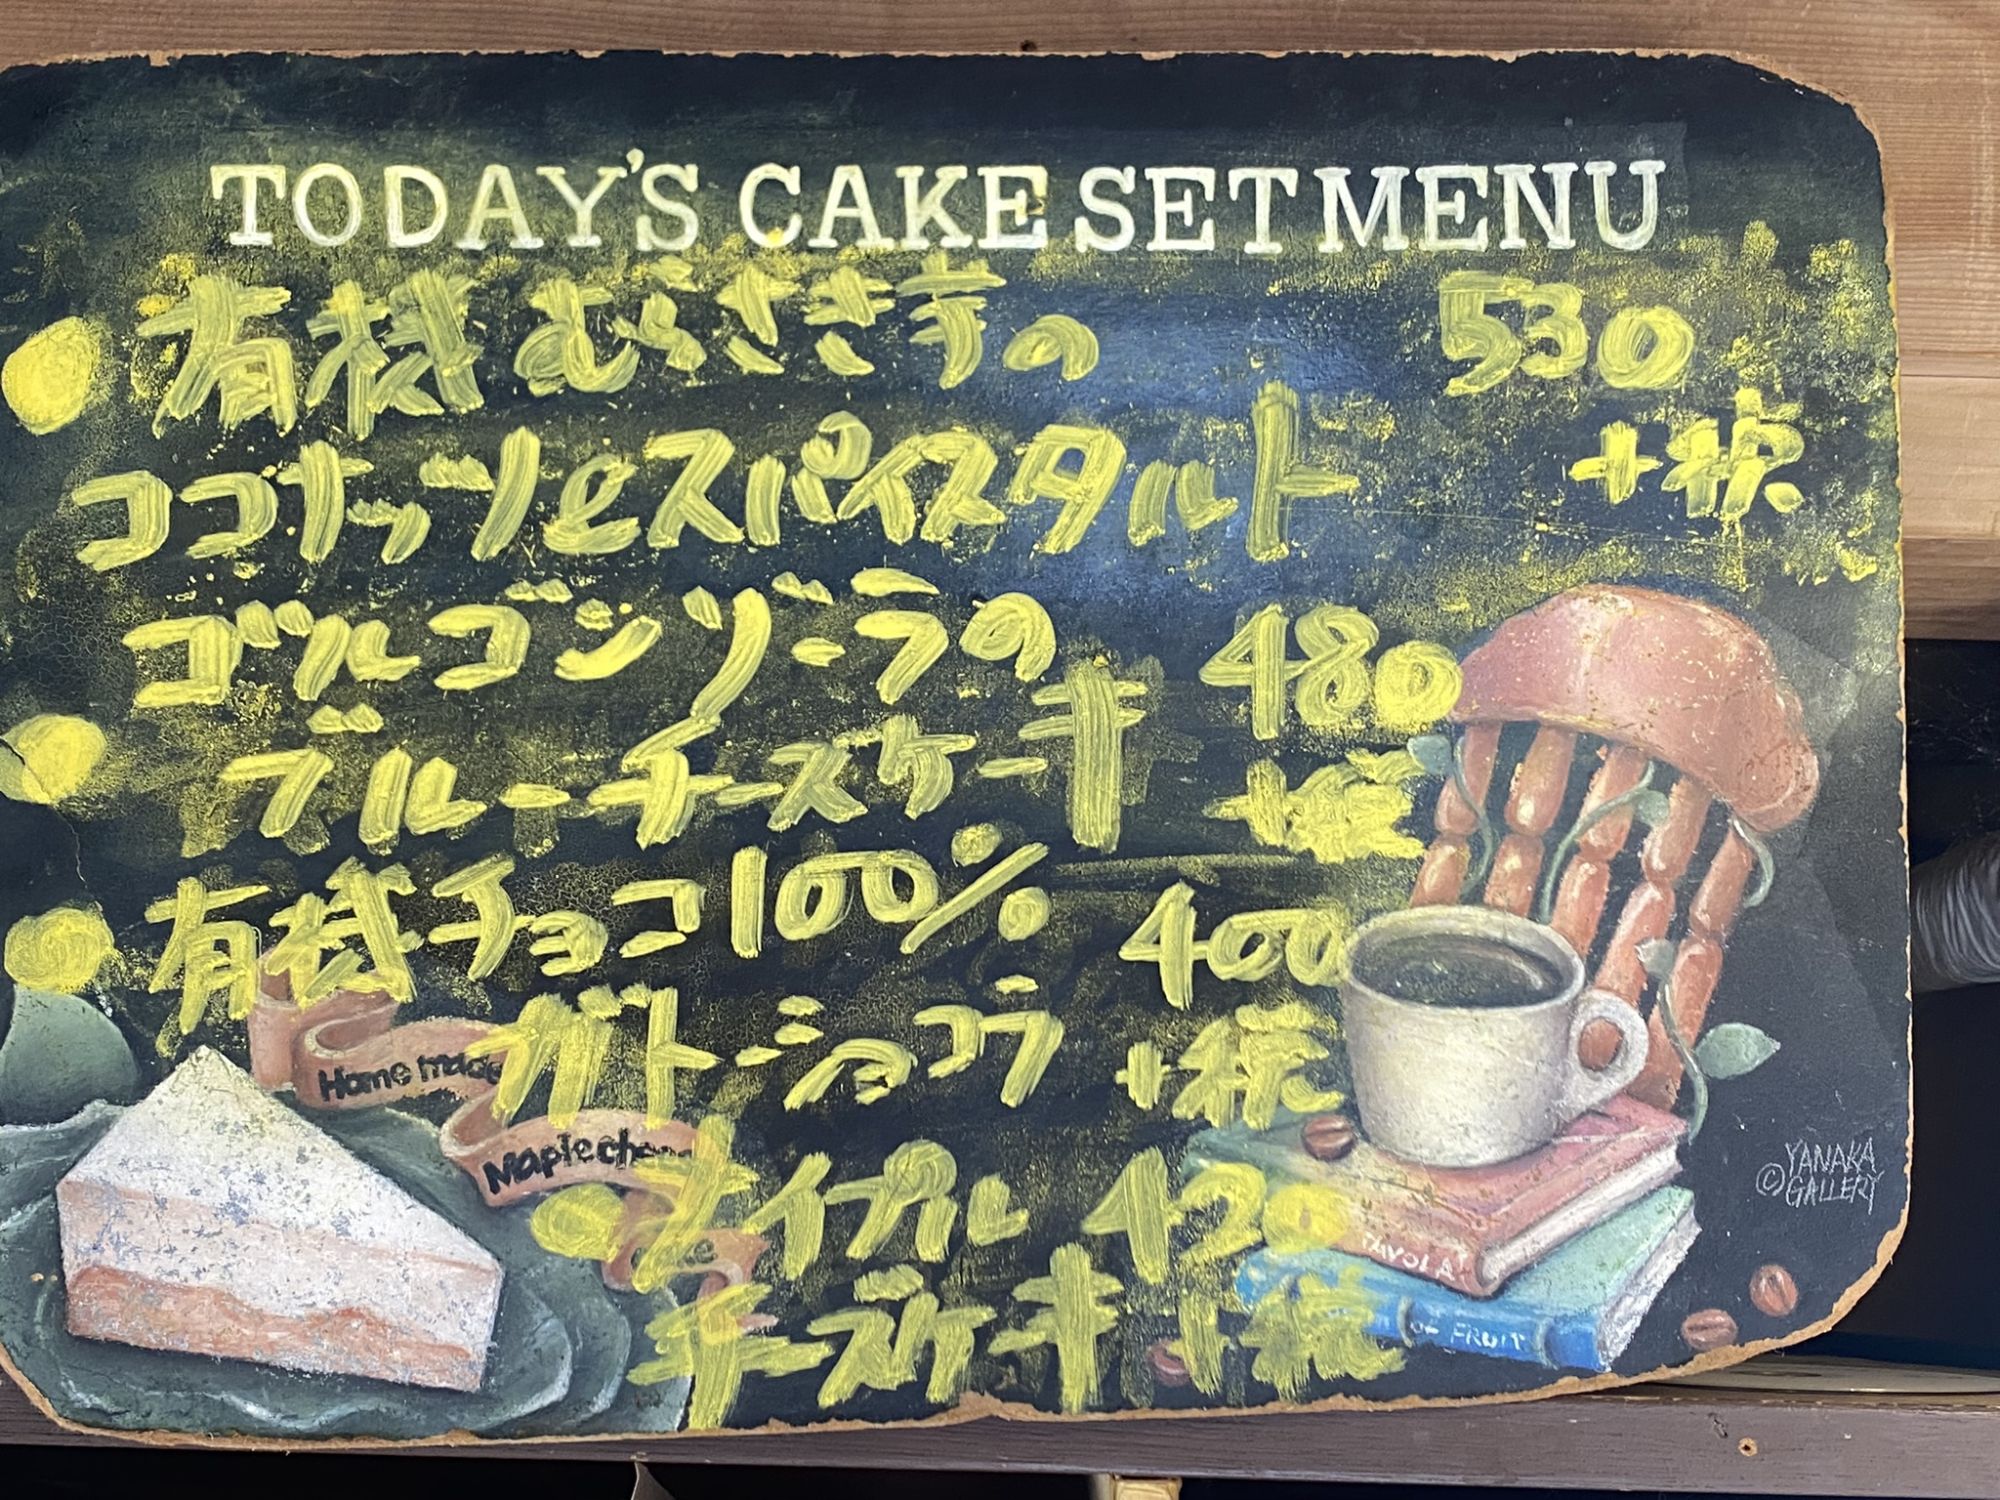 TODAY'S CAKE SET MENU
有機むらさき芋の 530
ココナッツとスパイスタルト +税
ゴルゴンゾーラの 480
ブルーチーズケーキ +税
有機チョコ100% 400
ガトーショコラ +税
Home made
Maple chee
メイプル 420
チーズケーキ +税
TAVOLA
OF FRUIT
© YANAKA
GALLERY